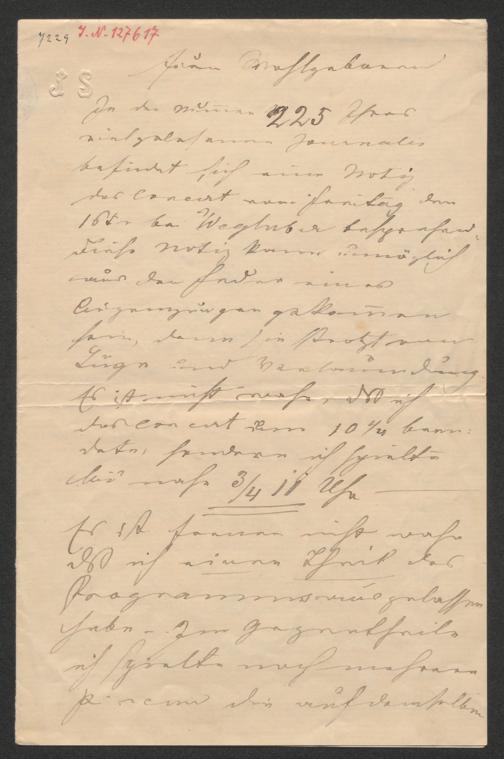 7229 I.N. 127617
Euer Wohlgeboren
In der Nummer 225 Ihres
vielgelesenen Journales
befindet sich eine Notiz
das Concert vom Freitag den
16t. bei Weghuber besprechend.
Diese Notiz kann unmöglich
aus der Feder eines
Augenzeugen gekommen
sein, denn sie strotzt von
Lüge und Verläumdung
Es ist nicht wahr, daß ich
das Concert um 10 1/4 been:
dete, sondern ich spielte
bis nahe 3/4 11 Uhr
Es ist ferner nicht wahr
daß ich einen Theil des
Programms ausgelassen
habe – Im Gegentheile
ich spielte noch mehrere
die auf demselben